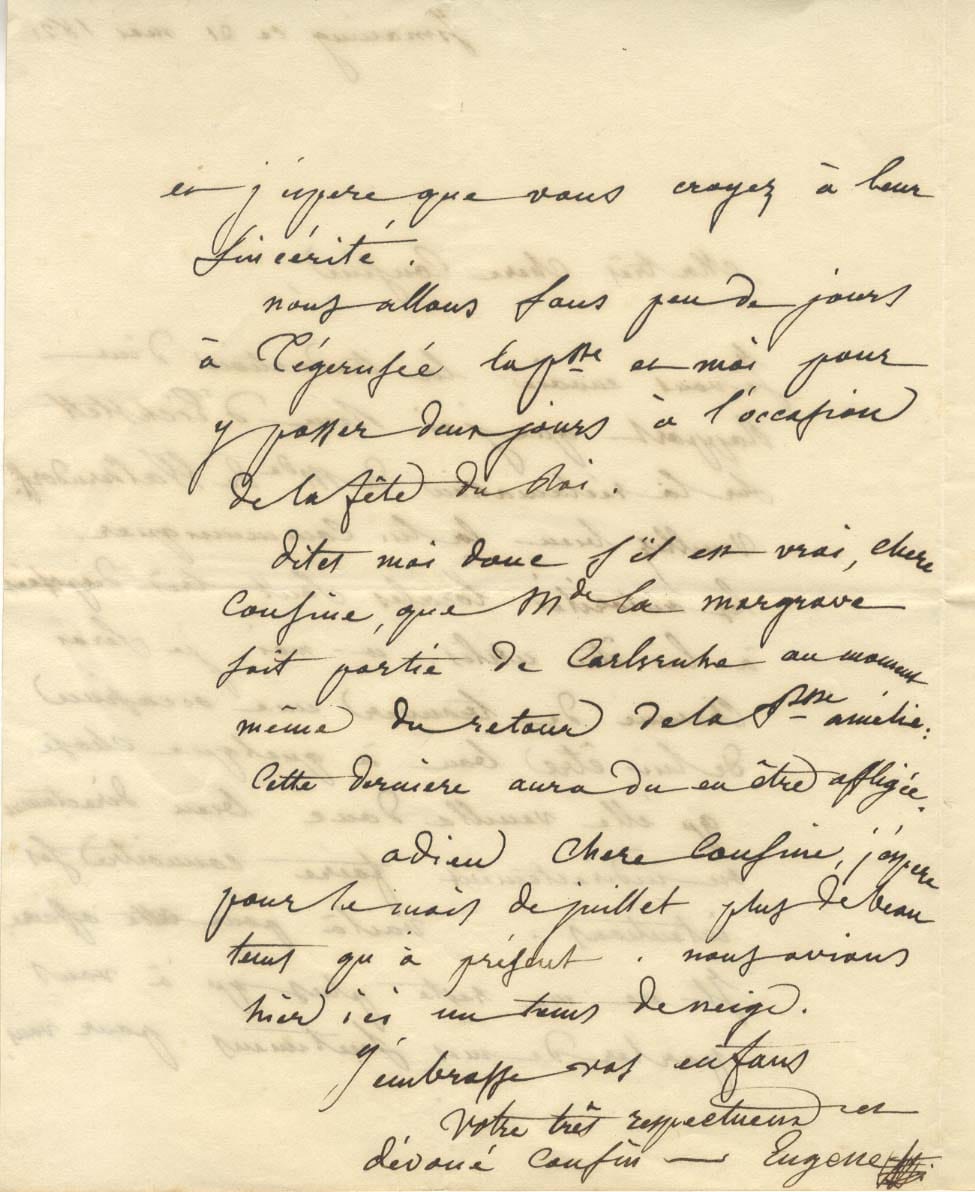 et j'espere que vous croyez à leur
sincérité.
nous allons sous peu de jours
à Tégernsée la psse et moi pour
y passer deux jours à l'occasion
de la fête du Roi.
dites moi donc s'il est vrai, chere
cousine, que Mde la margrave
soit partie de Carlsruhe au moment
même du retour de la Psse amélie.
Cette derniere aura du en être affligée.
adieu chere Cousine, j'espere
pour le mois de juillet plus de beau
tems qu'à présent. nous avions
hier ici un tems de neige.
J'embrasse vos enfans
Votre très respectueux et
dévoué cousin — Eugene